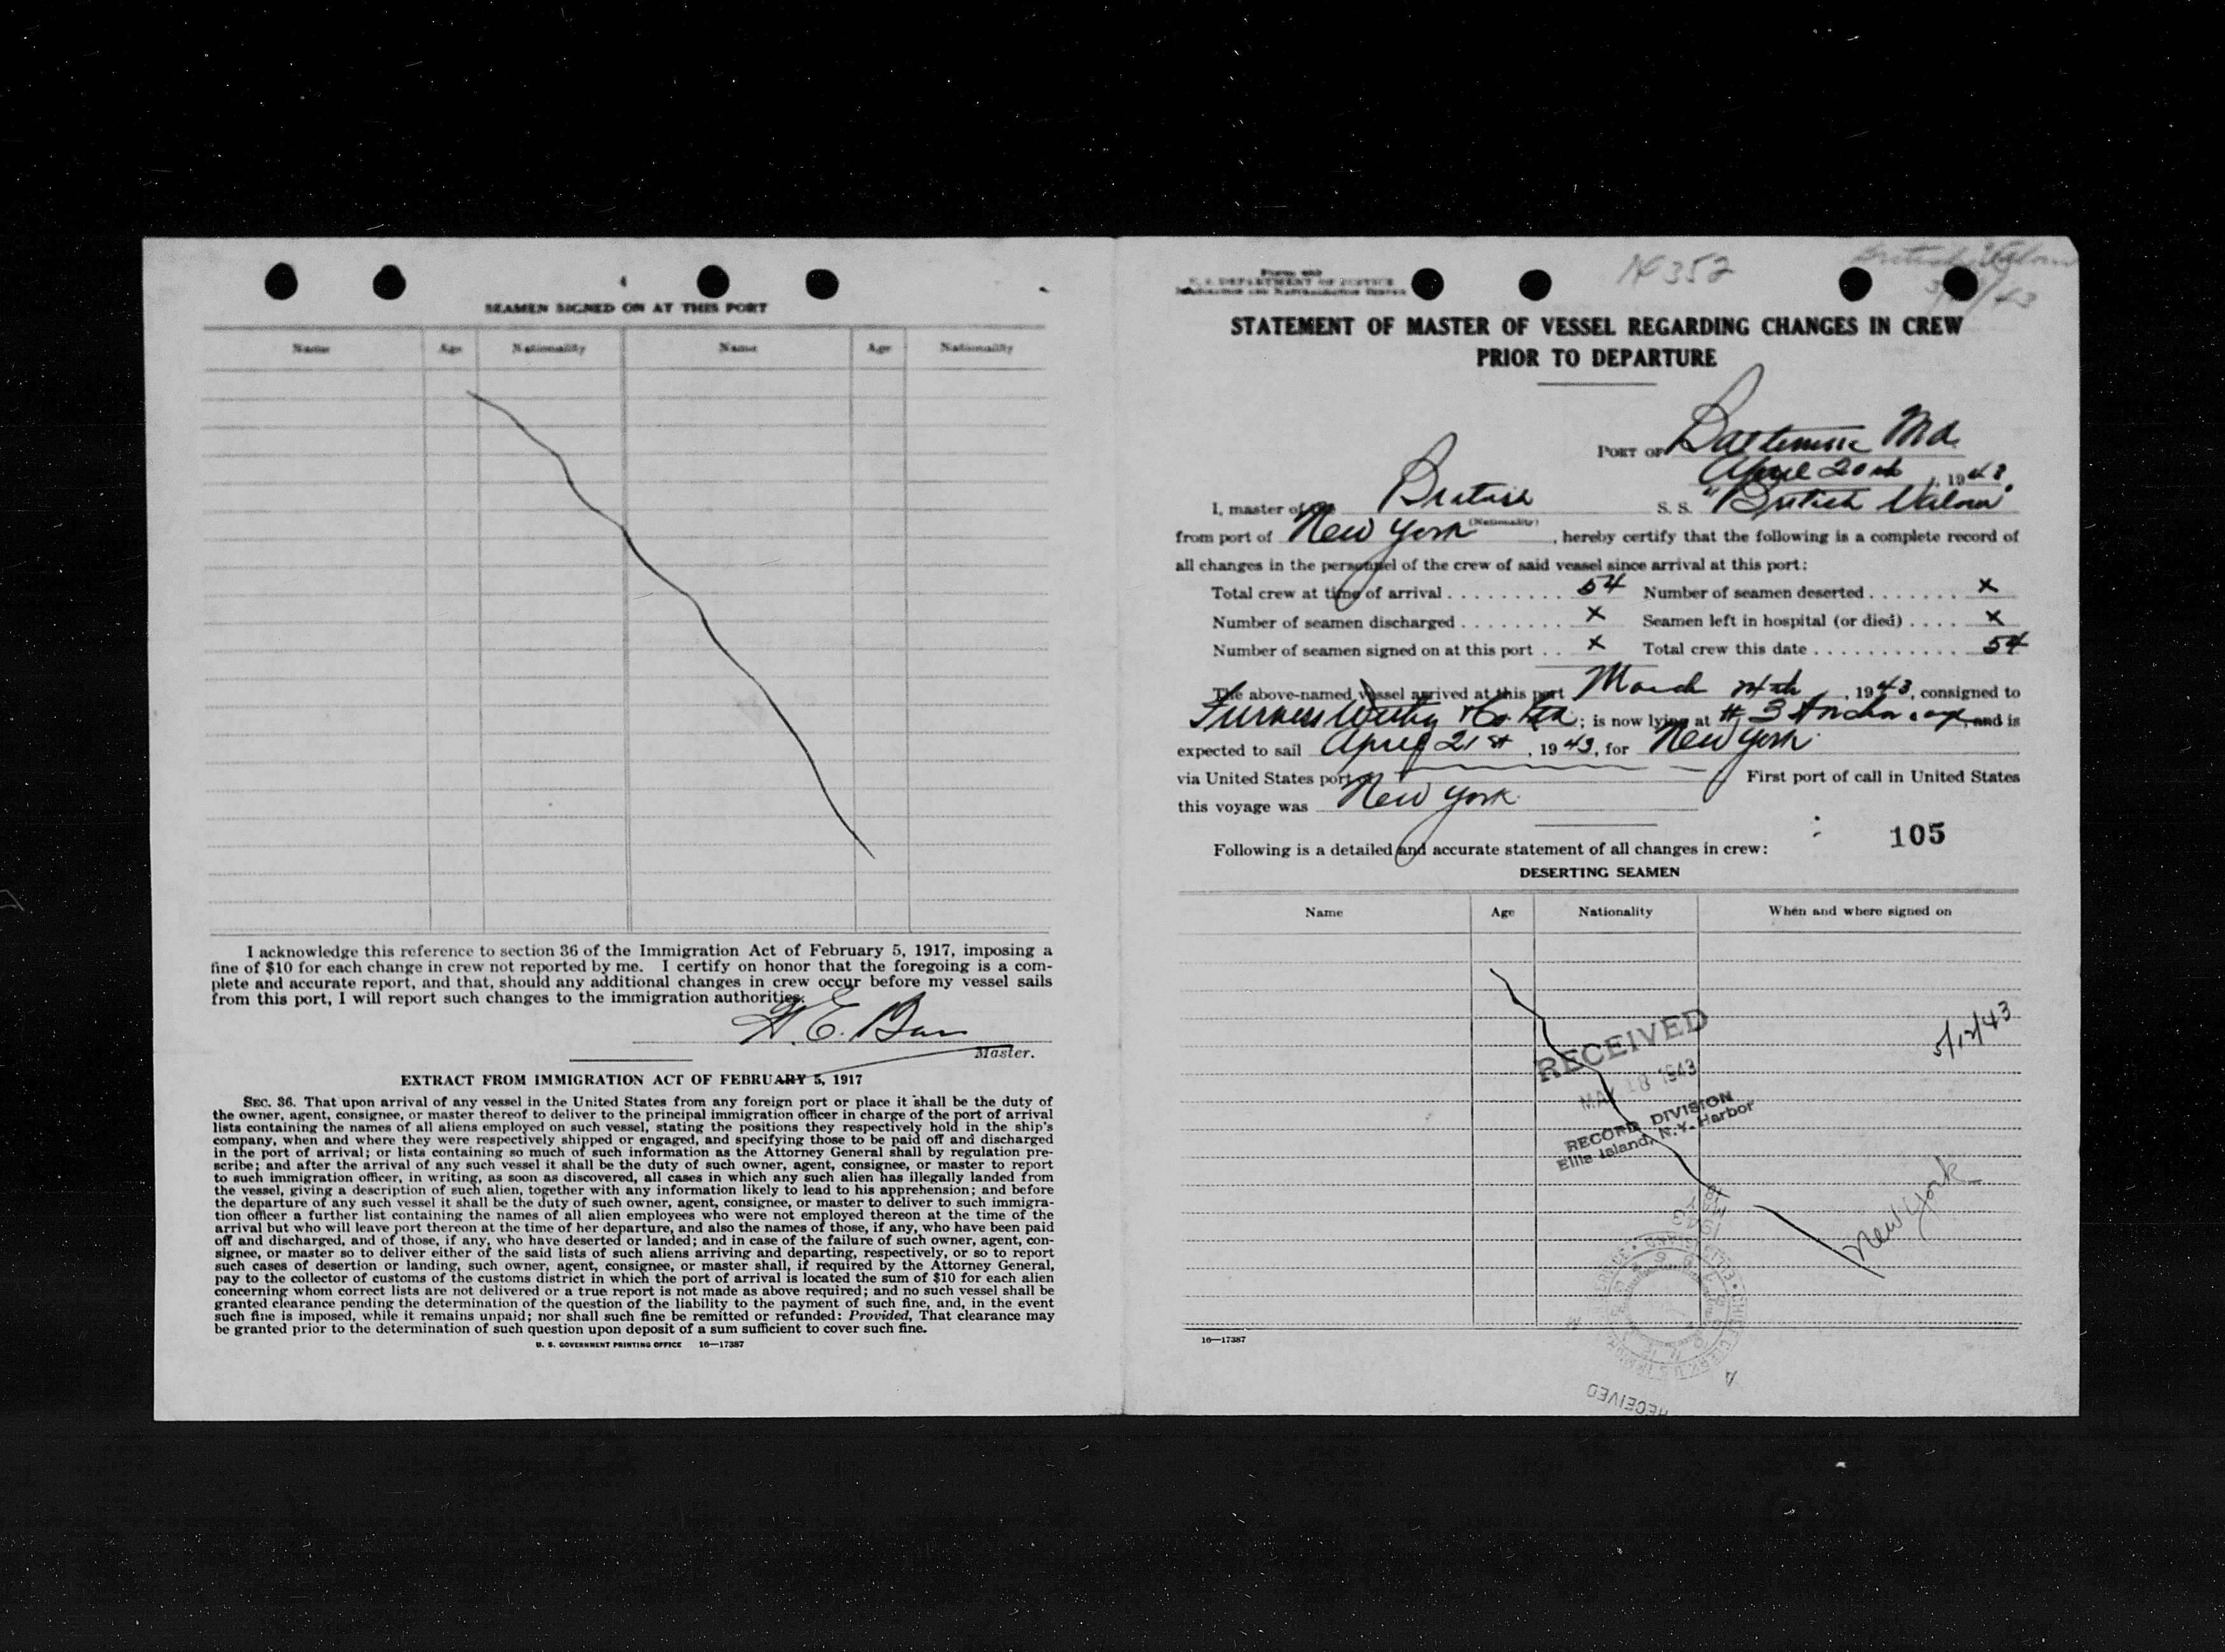 4
SEAMEN SIGNED ON AT THIS PORT
Name Age Nationality Name Age Nationality
I acknowledge this reference to section 36 of the Immigration Act of February 5, 1917, imposing a
fine of $10 for each change in crew not reported by me. I certify on honor that the foregoing is a com-
plete and accurate report, and that, should any additional changes in crew occur before my vessel sails
from this port, I will report such changes to the immigration authorities.
Master.
EXTRACT FROM IMMIGRATION ACT OF FEBRUARY 5, 1917
SEC. 36. That upon arrival of any vessel in the United States from any foreign port or place it shall be the duty of
the owner, agent, consignee, or master thereof to deliver to the principal immigration officer in charge of the port of arrival
lists containing the names of all aliens employed on such vessel, stating the positions they respectively hold in the ship's
company, when and where they were respectively shipped or engaged, and specifying those to be paid off and discharged
in the port of arrival; or lists containing so much of such information as the Attorney General shall by regulation pre-
scribe; and after the arrival of any such vessel it shall be the duty of such owner, agent, consignee, or master to report
to such immigration officer, in writing, as soon as discovered, all cases in which any such alien has illegally landed from
the vessel, giving a description of such alien, together with any information likely to lead to his apprehension; and before
the departure of any such vessel it shall be the duty of such owner, agent, consignee, or master to deliver to such immigra-
tion officer a further list containing the names of all alien employees who were not employed thereon at the time of the
arrival but who will leave port thereon at the time of her departure, and also the names of those, if any, who have been paid
off and discharged, and of those, if any, who have deserted or landed; and in case of the failure of such owner, agent, con-
signee, or master so to deliver either of the said lists of such aliens arriving and departing, respectively, or so to report
such cases of desertion or landing, such owner, agent, consignee, or master shall, if required by the Attorney General,
pay to the collector of customs of the customs district in which the port of arrival is located the sum of $10 for each alien
concerning whom correct lists are not delivered or a true report is not made as above required; and no such vessel shall be
granted clearance pending the determination of the question of the liability to the payment of such fine, and, in the event
such fine is imposed, while it remains unpaid; nor shall such fine be remitted or refunded: Provided, That clearance may
be granted prior to the determination of such question upon deposit of a sum sufficient to cover such fine.
U. S. GOVERNMENT PRINTING OFFICE 16—17387
U. S. DEPARTMENT OF JUSTICE
352
STATEMENT OF MASTER OF VESSEL REGARDING CHANGES IN CREW
PRIOR TO DEPARTURE
PORT OF Baltimore Md.
April 20th, 1943.
I, master of the British S. S. "British Valour"
(Nationality)
from port of New York, hereby certify that the following is a complete record of
all changes in the personnel of the crew of said vessel since arrival at this port:
Total crew at time of arrival 54 Number of seamen deserted x
Number of seamen discharged x Seamen left in hospital (or died) x
Number of seamen signed on at this port x Total crew this date 54
The above-named vessel arrived at this port March, 1943, consigned to
Furness Withy & Co Ltd.; is now lying at # 3 Anchorage, and is
expected to sail April 21st, 1943, for New York
via United States ports First port of call in United States
this voyage was New York
105
Following is a detailed and accurate statement of all changes in crew:
DESERTING SEAMEN
Name Age Nationality When and where signed on
5/12/43
RECEIVED
MAY 18 1943
RECORD DIVISION
Ellis Island, N.Y. Harbor
New York
16—17387
RECEIVED